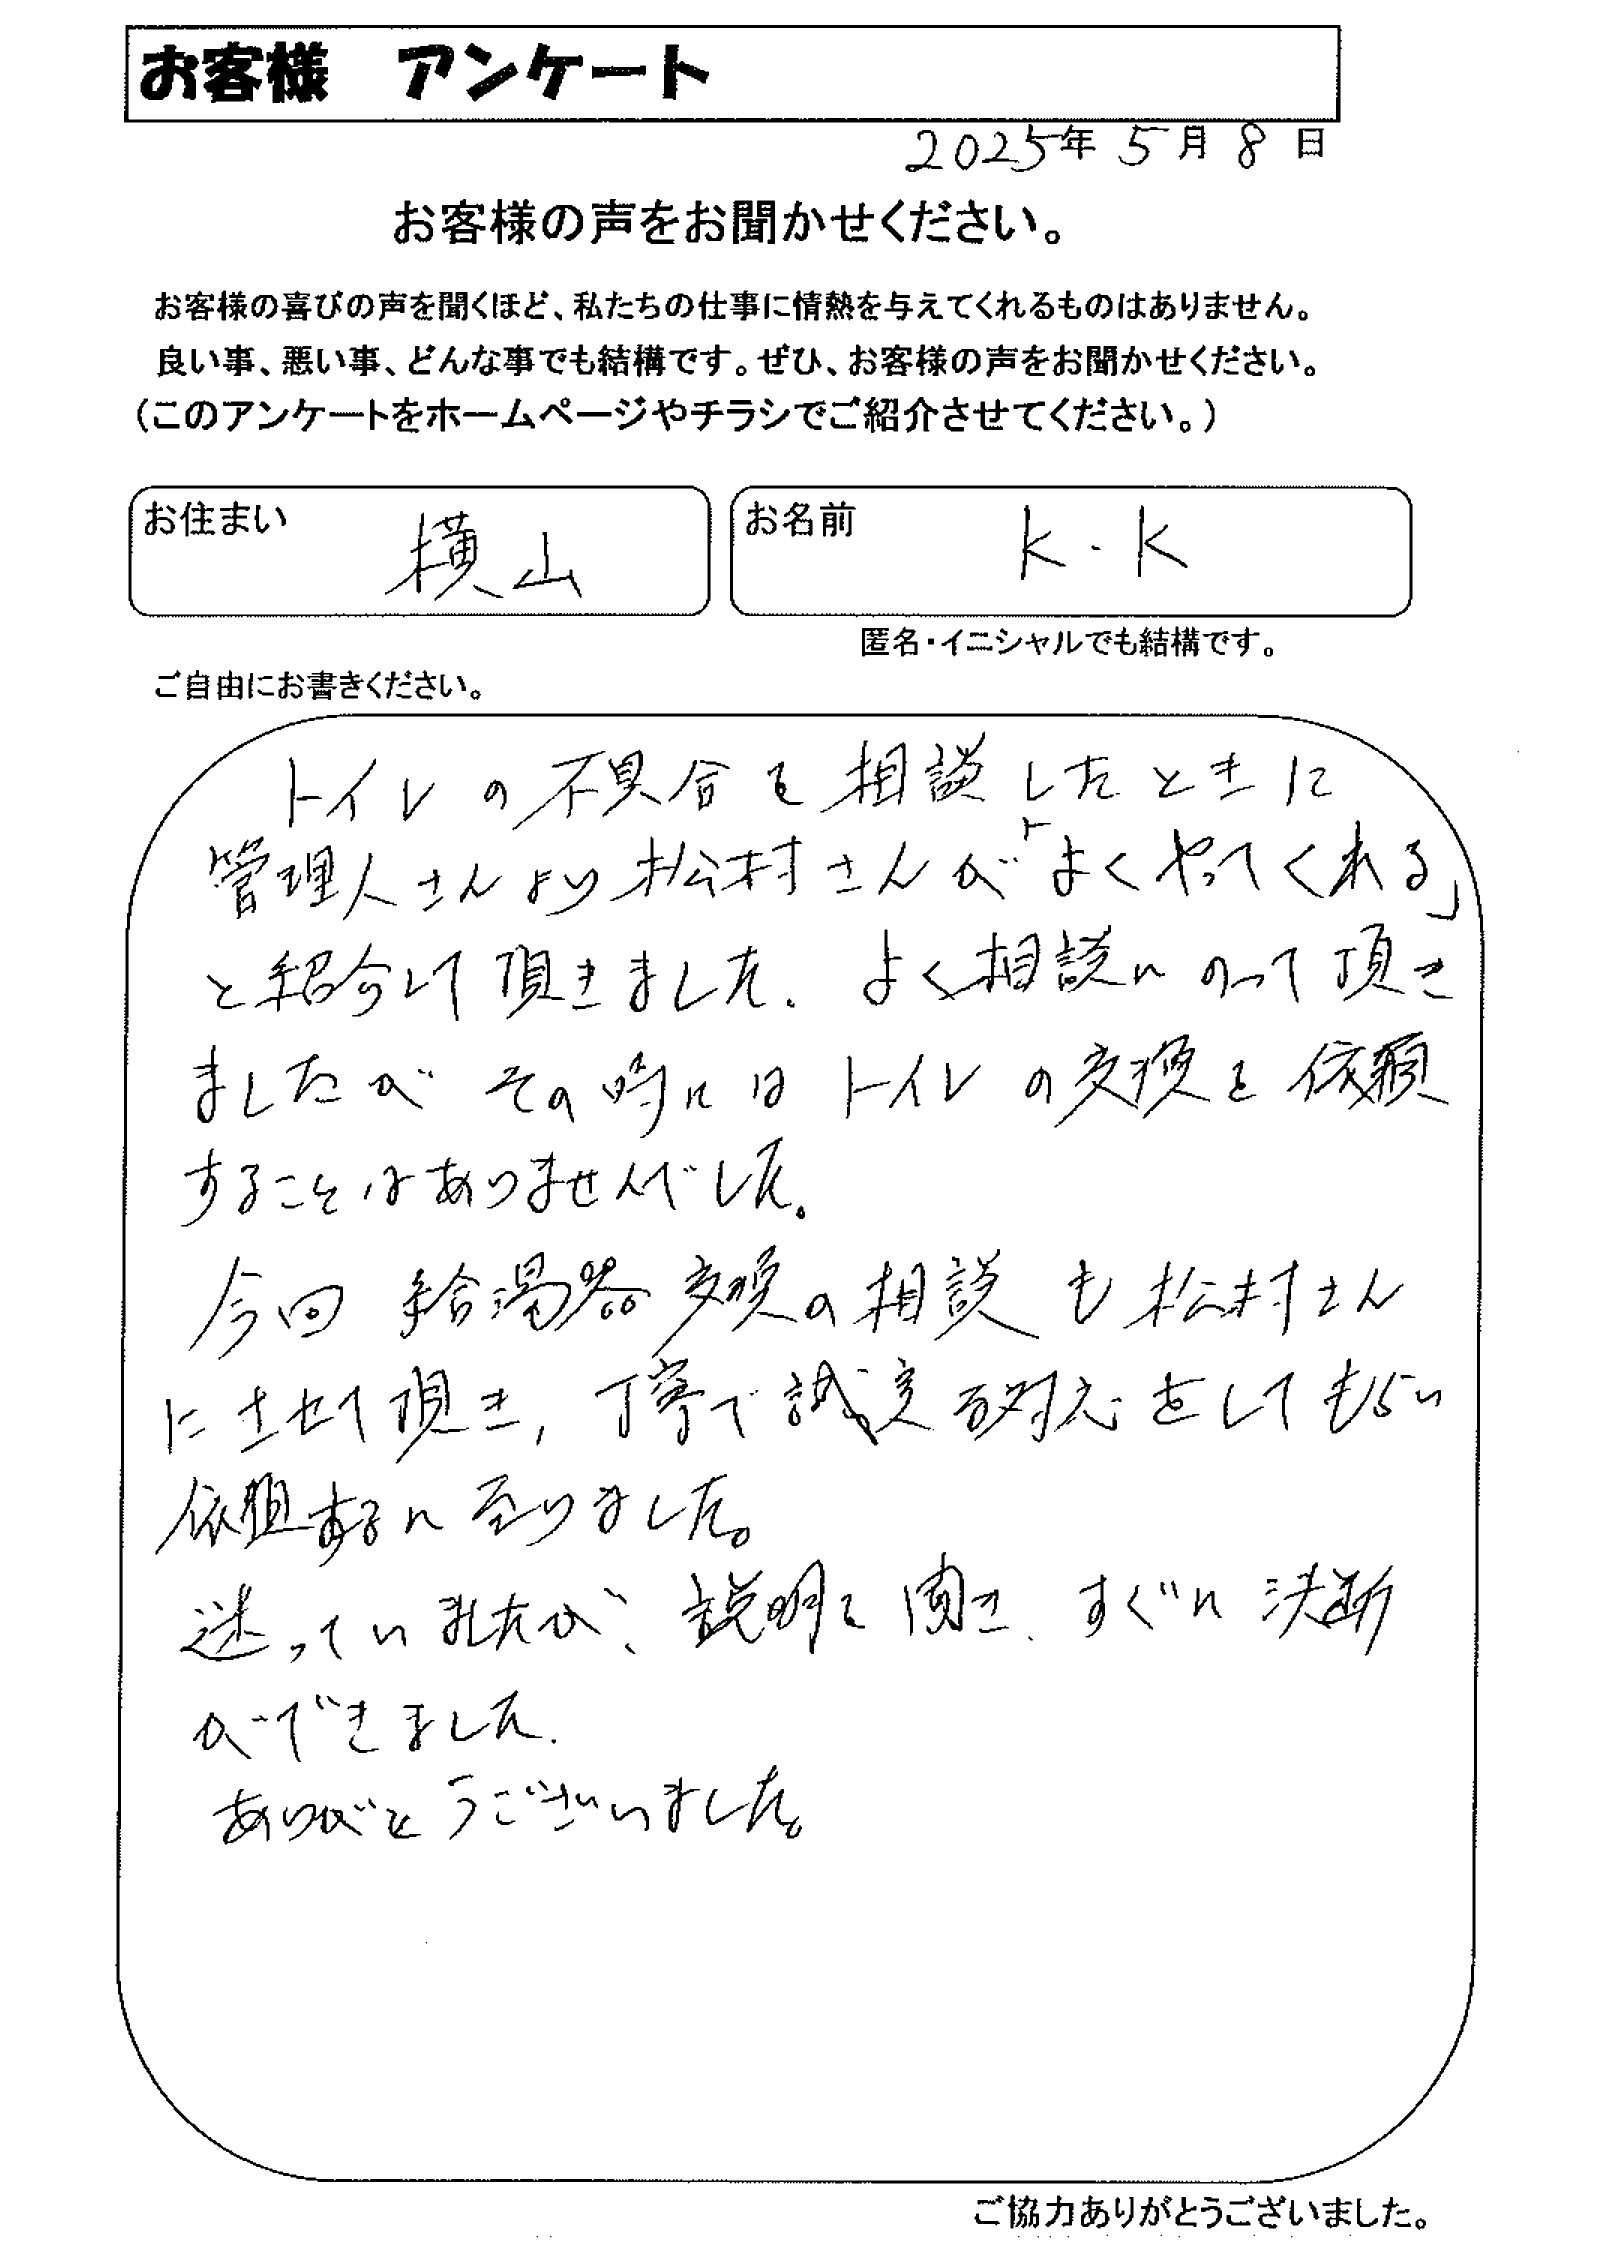 お客様 アンケート
2025年 5月 8日
お客様の声をお聞かせください。
お客様の喜びの声を聞くほど、私たちの仕事に情熱を与えてくれるものはありません。
良い事、悪い事、どんな事でも結構です。ぜひ、お客様の声をお聞かせください。
(このアンケートをホームページやチラシでご紹介させてください。)
お住まい 横山
お名前 K.K
匿名・イニシャルでも結構です。
ご自由にお書きください。
トイレの不具合を相談したときに
管理人さんより松村さんが「よくやってくれる」
と紹介して頂きました. よく相談にのって頂き
ましたが その時には トイレの交換を依頼
することはありませんでした。
今回 給湯器交換の相談も松村さん
にさせて頂き, 丁寧で誠実な対応をしてもらい
依頼するに至りました。
迷っていましたが、説明を聞き、すぐに決断
ができました.
ありがとうございました。
ご協力ありがとうございました。